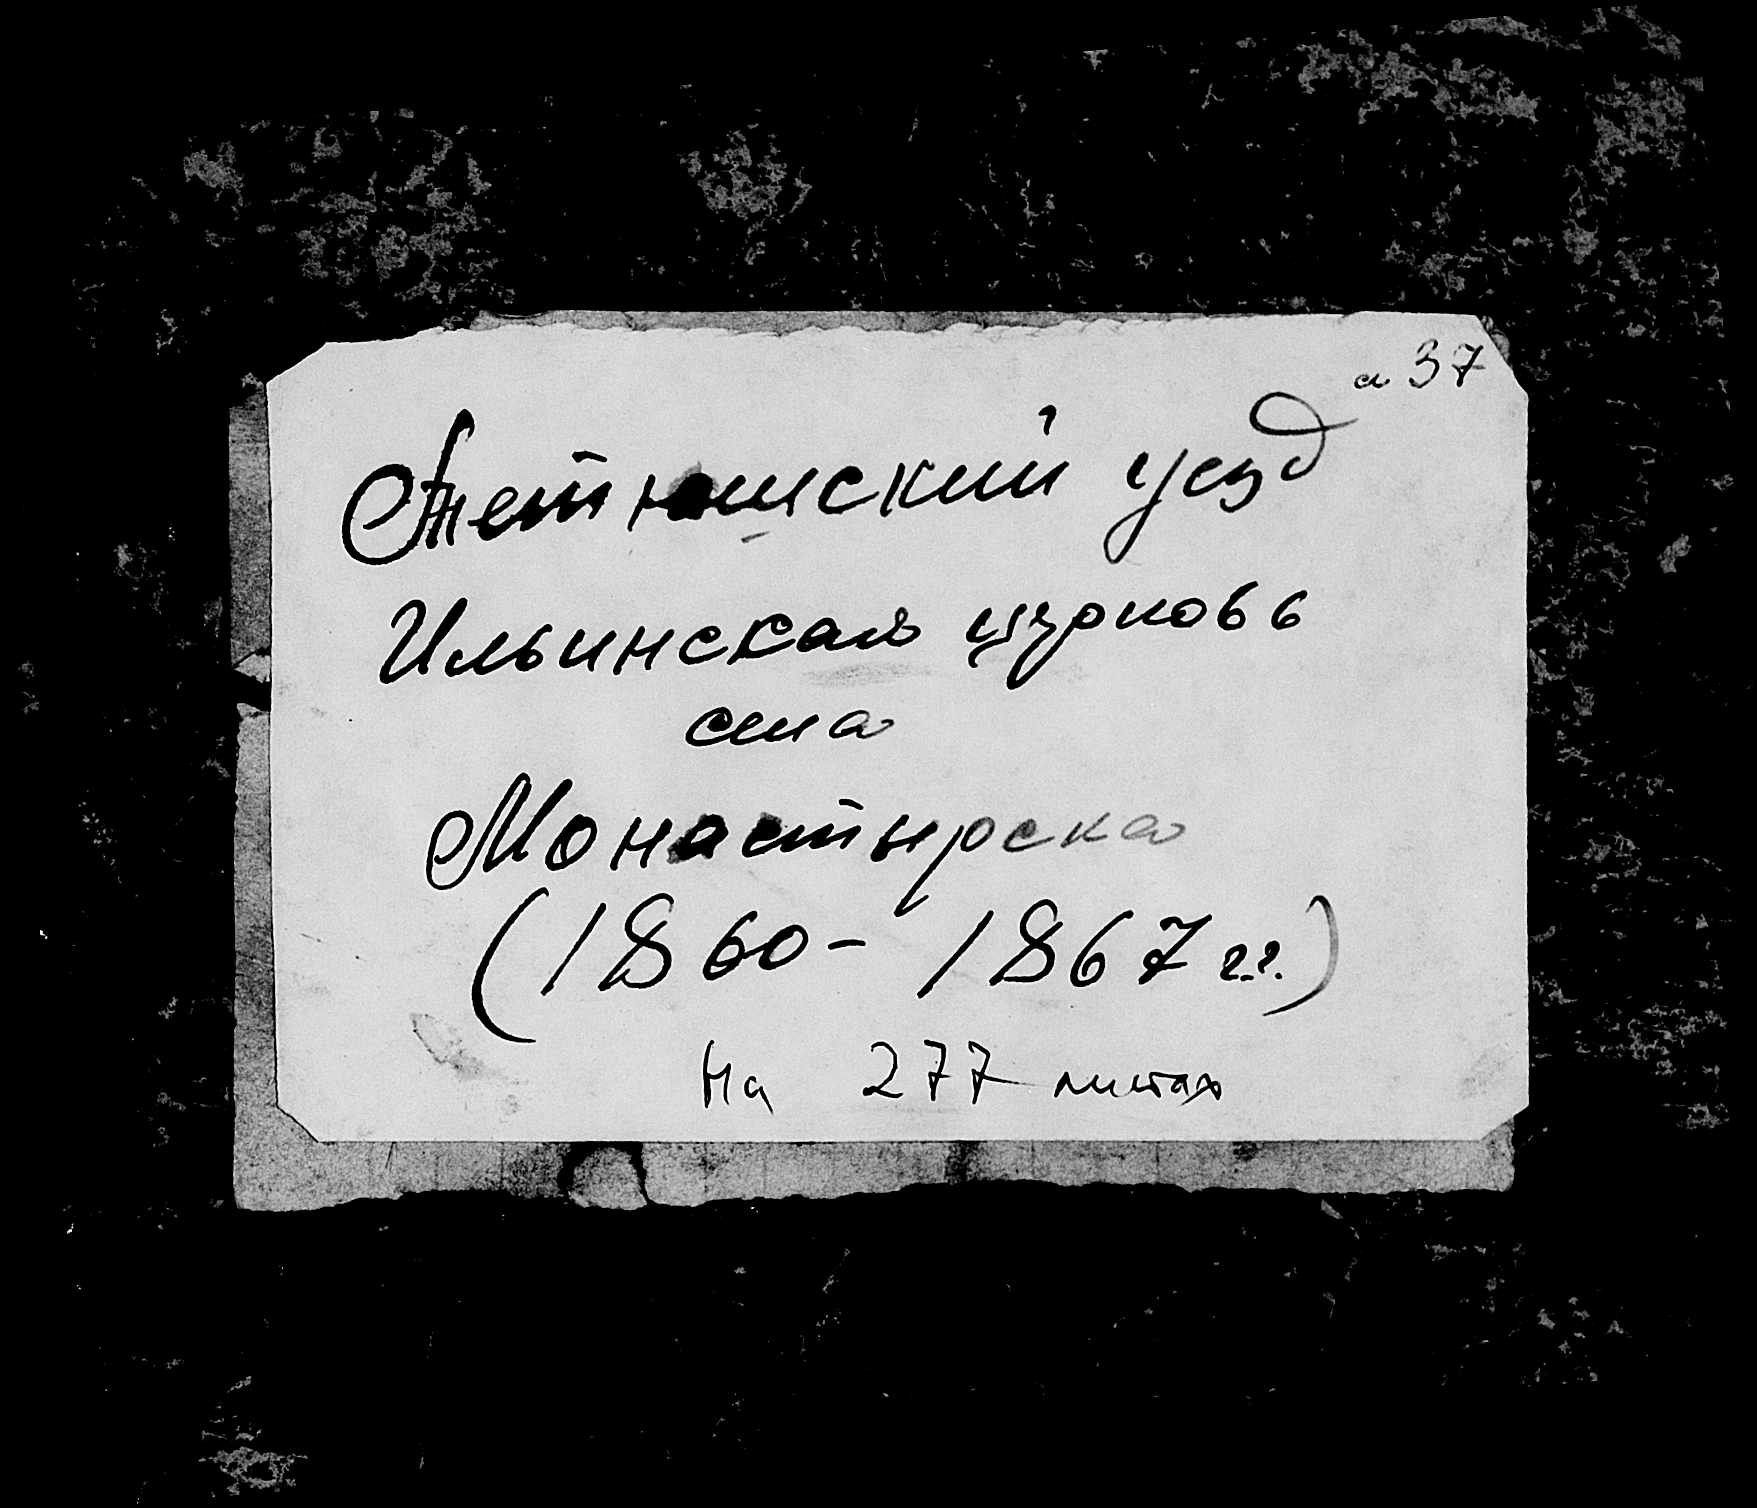 а 37
Тетюшский уезд
Ильинская церковь
села
Монастырска
(1860 - 1867 г.г.)
На 277 листах